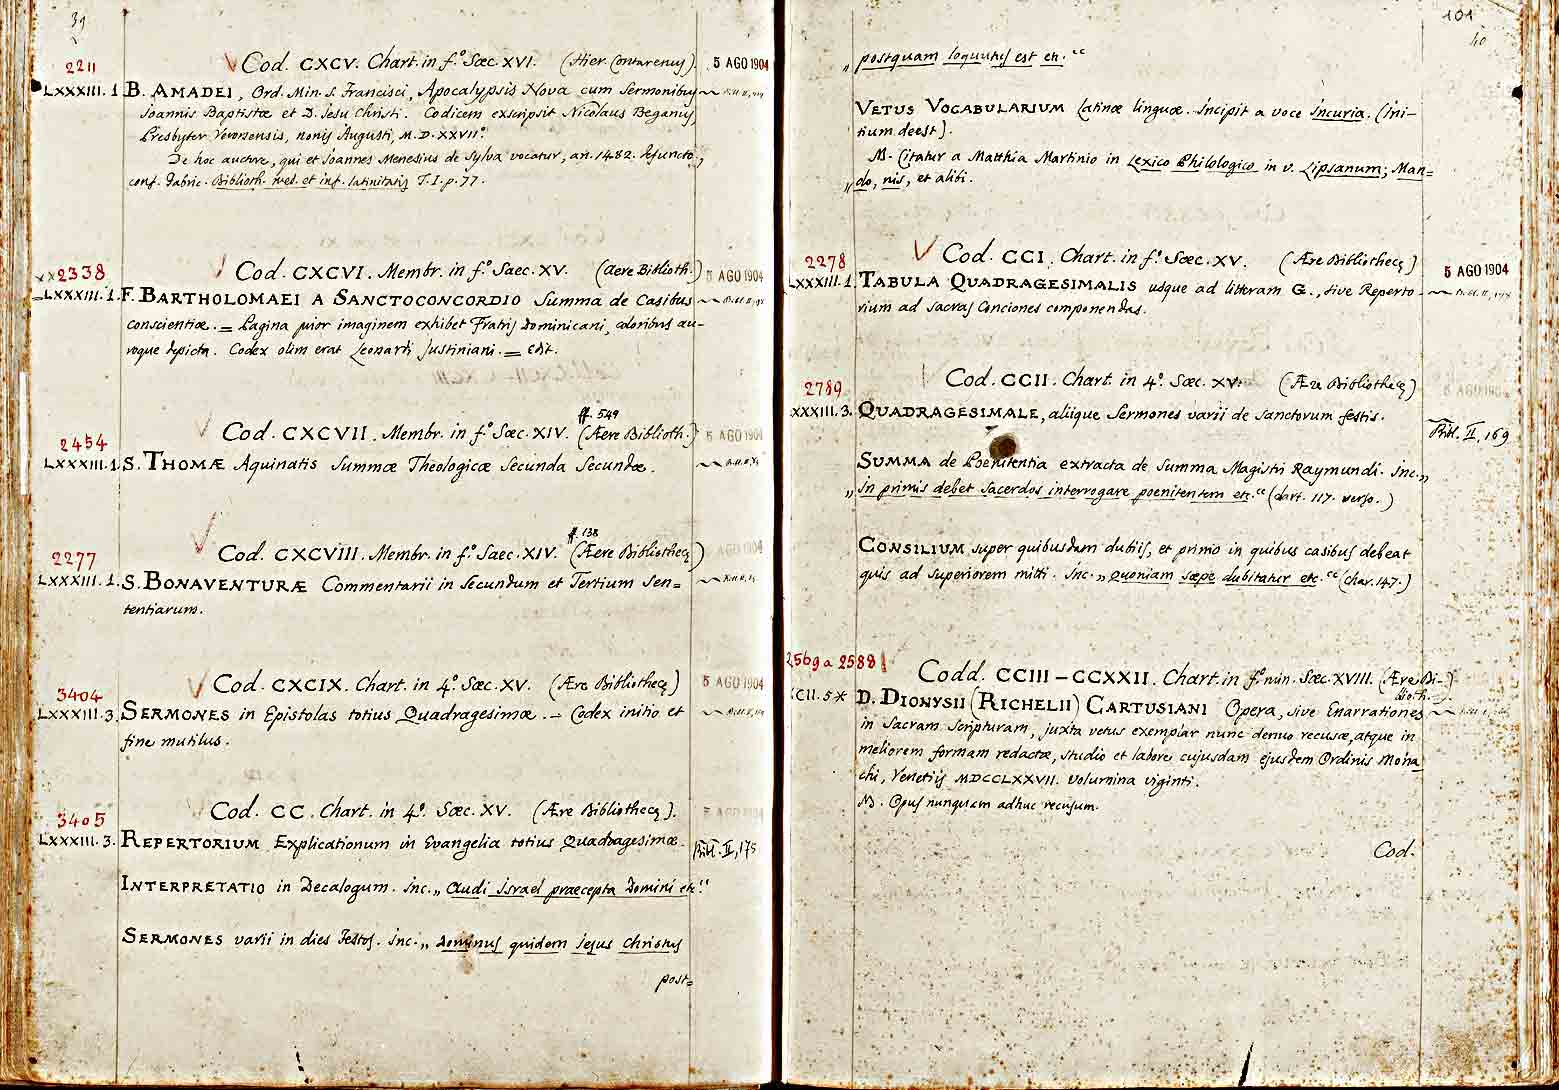 39
2211
Cod. CXCV. Chart. in f.º Sæc. XVI. (Hier. Contarenus). 5 AGO 1904
LXXXIII. 1 B. AMADEI, Ord. Min. S. Francisci, Apocalypsis Nova cum Sermonibus
Joannis Baptistæ et D. Jesu Christi. Codicem exscripsit Nicolaus Beganus,
Presbyter Veronensis, nonis Augusti, M.D.XXVII.º
De hoc auctore, qui et Joannes Menesius de Sylva vocatur, an. 1482. defuncto,
conf. Fabric. Biblioth. med. et inf. latinitatis T. I. p. 77.
2338
Cod. CXCVI. Membr. in f.º Saec. XV. (Aere Biblioth.) 5 AGO 1904
LXXXIII. 1. F. BARTHOLOMAEI A SANCTOCONCORDIO Summa de Casibus
conscientiæ. = Pagina prior imaginem exhibet Fratris Dominicani, coloribus au-
roque depicta. Codex olim erat Leonardi Justiniani. = edit.
ff. 549
2454
Cod. CXCVII. Membr. in f.º Sæc. XIV. (Ære Biblioth.) 5 AGO 1904
LXXXIII. 1. S. THOMÆ Aquinatis Summæ Theologicæ Secunda Secundæ.
ff. 138
2277
Cod. CXCVIII. Membr. in f.º Saec. XIV. (Ære Bibliothecę) AGO 1904
LXXXIII. 1. S. BONAVENTURÆ Commentarii in Secundum et Tertium Sen=
tentiarum.
3404
Cod. CXCIX. Chart. in 4.º Sæc. XV. (Ære Bibliothecę) 5 AGO 1904
LXXXIII. 3. SERMONES in Epistolas totius Quadragesimæ. — Codex initio et
fine mutilus.
3405
Cod. CC. Chart. in 4.º Sæc. XV. (Ære Bibliothecę). 5 AGO 1904
LXXXIII. 3. REPERTORIUM Explicationum in Evangelia totius Quadragesimæ. II, 175
INTERPRETATIO in Decalogum. inc. „ Audi israel praecepta Domini etc.“
SERMONES varii in dies Festos. inc. „ Dominus quidem Jesus Christus
post=
101
40
„ postquam loquutus est etc.“
VETUS VOCABULARIUM latinæ linguæ. Incipit a voce Incuria. (Ini-
tium deest).
NB. Citatur a Matthia Martinio in Lexico Philologico in v. Lipsanum; Man=
„ do, nis, et alibi.
2278
Cod. CCI. Chart. in f.º Sæc. XV. (Ære Bibliothecę) 5 AGO 1904
LXXXIII. 1. TABULA QUADRAGESIMALIS usque ad litteram G., sive Reperto-
rium ad sacras Conciones componendas.
2789
Cod. CCII. Chart. in 4.º Sæc. XV. (Ære Bibliothecę) 5 AGO 1904
XXXIII. 3. QUADRAGESIMALE, aliique Sermones varii de Sanctorum festis. II, 169
SUMMA de Poenitentia extracta de Summa Magistri Raymundi. Inc. „
„ In primis debet Sacerdos interrogare poenitentem etc.“ (chart. 117. verso.)
CONSILIUM super quibusdam dubiis, et primo in quibus casibus debeat
quis ad Superiorem mitti. Inc. „ Quoniam sæpe dubitatur etc.“ (char. 147.)
2569 a 2588
Codd. CCIII – CCXXII. Chart. in f.º min. Sæc. XVIII. (Ære Bi-
blioth.)
CII. 5* D. DIONYSII (RICHELII) CARTUSIANI Opera, sive Enarrationes
in Sacram Scripturam, juxta vetus exemplar nunc denuo recusæ, atque in
meliorem formam redactæ, studio et labore cujusdam ejusdem Ordinis Mona
chi, Venetiis MDCCLXXVII. volumina viginti.
NB. Opus nunquam adhuc recusum.
Cod.